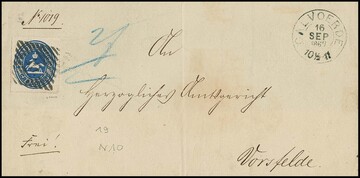 No 1019.
VELVOERDE
16
SEP
1867
10½-11
An
Herzogliches Amtsgericht
Vorsfelde.
Frei!
19
N10